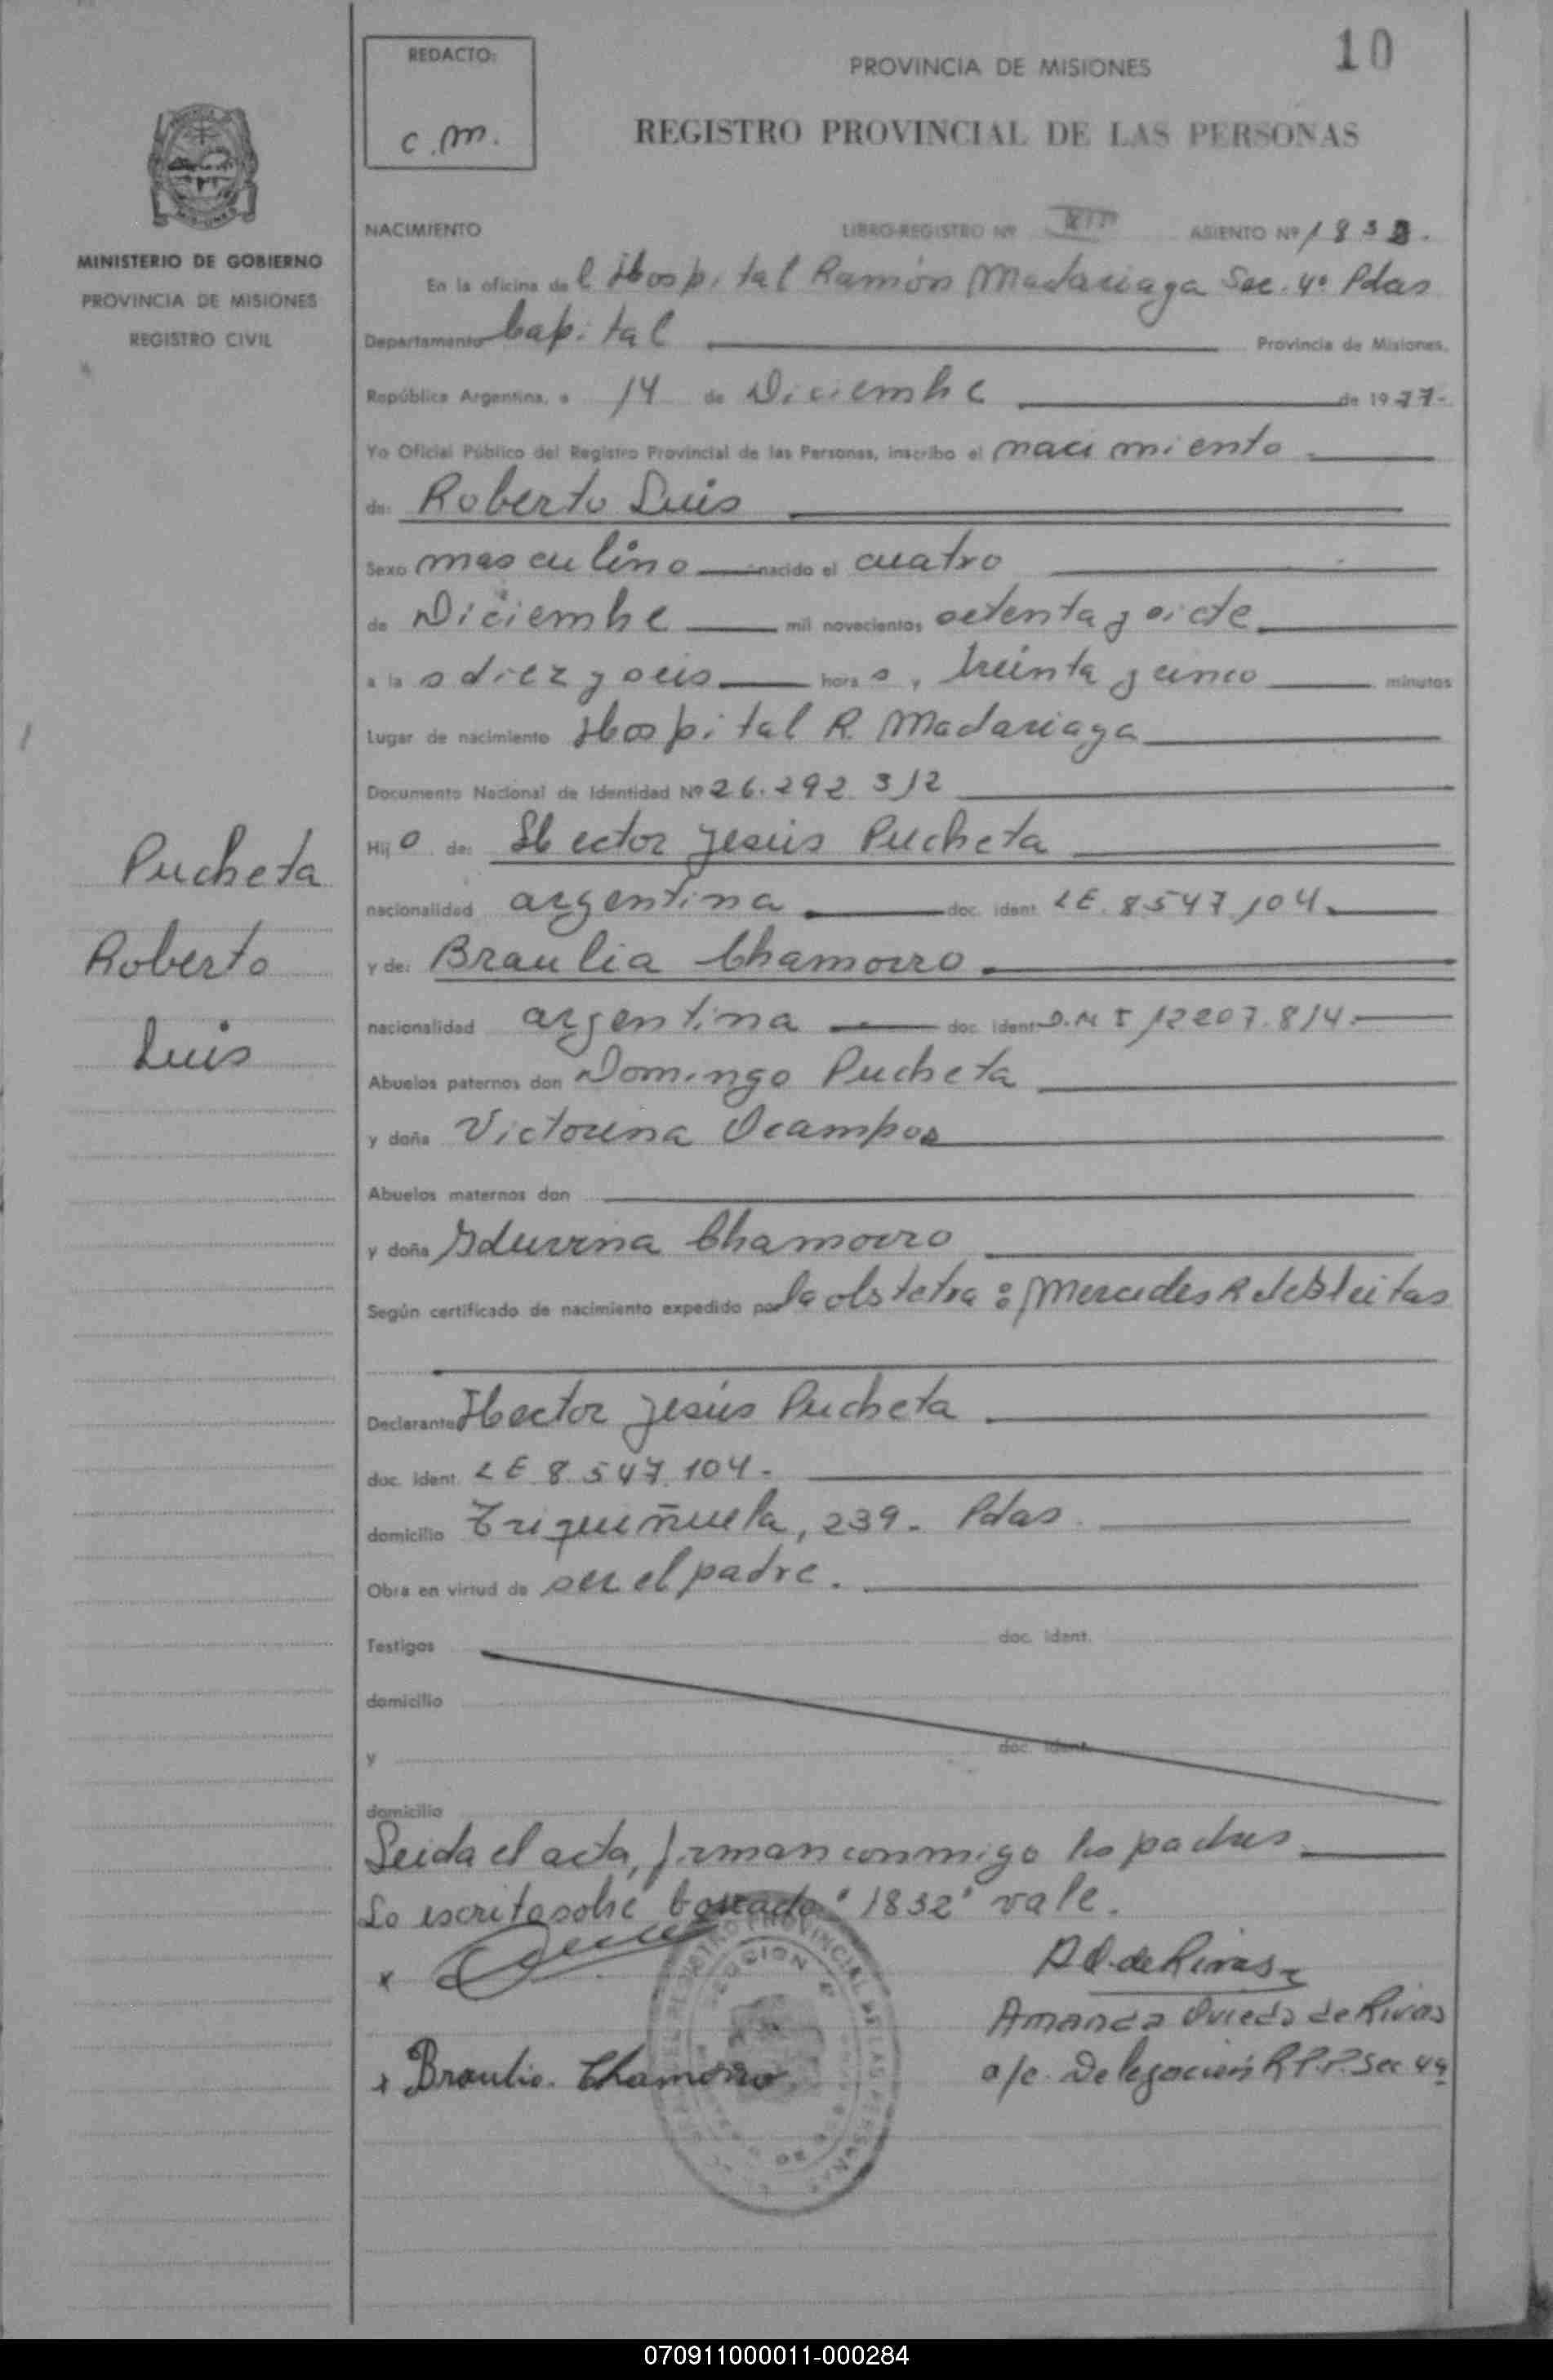 10
REDACTO:
c.m.
PROVINCIA DE MISIONES
REGISTRO PROVINCIAL DE LAS PERSONAS
MINISTERIO DE GOBIERNO
PROVINCIA DE MISIONES
REGISTRO CIVIL
NACIMIENTO LIBRO-REGISTRO Nº ASIENTO Nº
En la oficina del Hospital Ramón Madariaga Sec. 4º Pdas
Departamento Capital Provincia de Misiones.
República Argentina, a 14 de Diciembre de 1977-
Yo Oficial Público del Registro Provincial de las Personas, inscribo el nacimiento
de: Roberto Luis
Sexo masculino nacido el cuatro
de Diciembre mil novecientos setenta y siete
a las diez y seis horas, treinta y cinco minutos
Lugar de nacimiento Hospital R. Madariaga
Documento Nacional de Identidad Nº 26.292.312
Hijo de: Hector Jesús Pucheta
nacionalidad argentina doc. ident. LE. 8547.104.
y de: Braulia Chamorro
nacionalidad argentina doc. ident. D.N.I 12207.814.
Abuelos paternos don Domingo Pucheta
y doña Victorina Ocampos
Abuelos maternos don
y doña Chamorro
Según certificado de nacimiento expedido por la obstetra: Mercedes R de
Declarante Hector Jesús Pucheta
doc. ident. LE 8.547.104.
domicilio 239. Pdas.
Obra en virtud de ser el padre.
Testigos doc. ident.
domicilio
y doc. ident.
domicilio
Leida el acta, firman conmigo los padres
Lo escrito sobre borrado "1832" vale.
A O. de Rivas
Amanda Oviedo de Rivas
x Braulia. Chamorro
a/c. Delegación R.P.P. Sec 4ª
Pucheta
Roberto
Luis
070911000011-000284